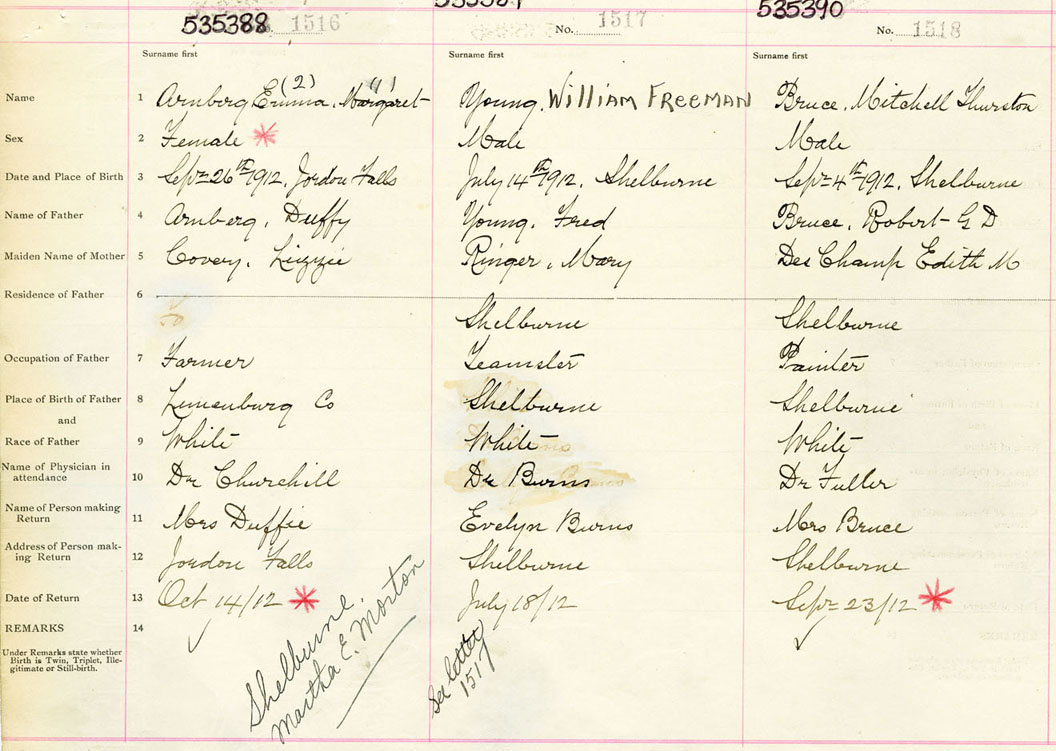 535388 1516
No. 1517
535390
No. 1518
Surname first Surname first Surname first
Name 1 Arnberg Emma (2), Margaret (1) Young, William Freeman Bruce, Mitchell Thurston
Sex 2 Female * Male Male
Date and Place of Birth 3 Sept 26th 1912, Jordon Falls July 14th 1912, Shelburne Sept 4th 1912, Shelburne
Name of Father 4 Arnberg, Duffy Young, Fred Bruce, Robert G D
Maiden Name of Mother 5 Covey, Lizzie Ringer, Mary DesChamp Edith M
Residence of Father 6
Shelburne Shelburne
Occupation of Father 7 Farmer Teamster Painter
Place of Birth of Father 8 Lunenburg Co Shelburne Shelburne
and
Race of Father 9 White White White
Name of Physician in
attendance 10 Dr Churchill Dr Burns Dr Fuller
Name of Person making
Return 11 Mrs Duffie Evelyn Burns Mrs Bruce
Address of Person mak-
ing Return 12 Jordon Falls Shelburne Shelburne
Date of Return 13 Oct 14/12 * July 18/12 Sept 23/12 *
REMARKS 14
Under Remarks state whether
Birth is Twin, Triplet, Ille-
gitimate or Still-birth.
Shelburne.
Martha E. Morton
See letter
1517